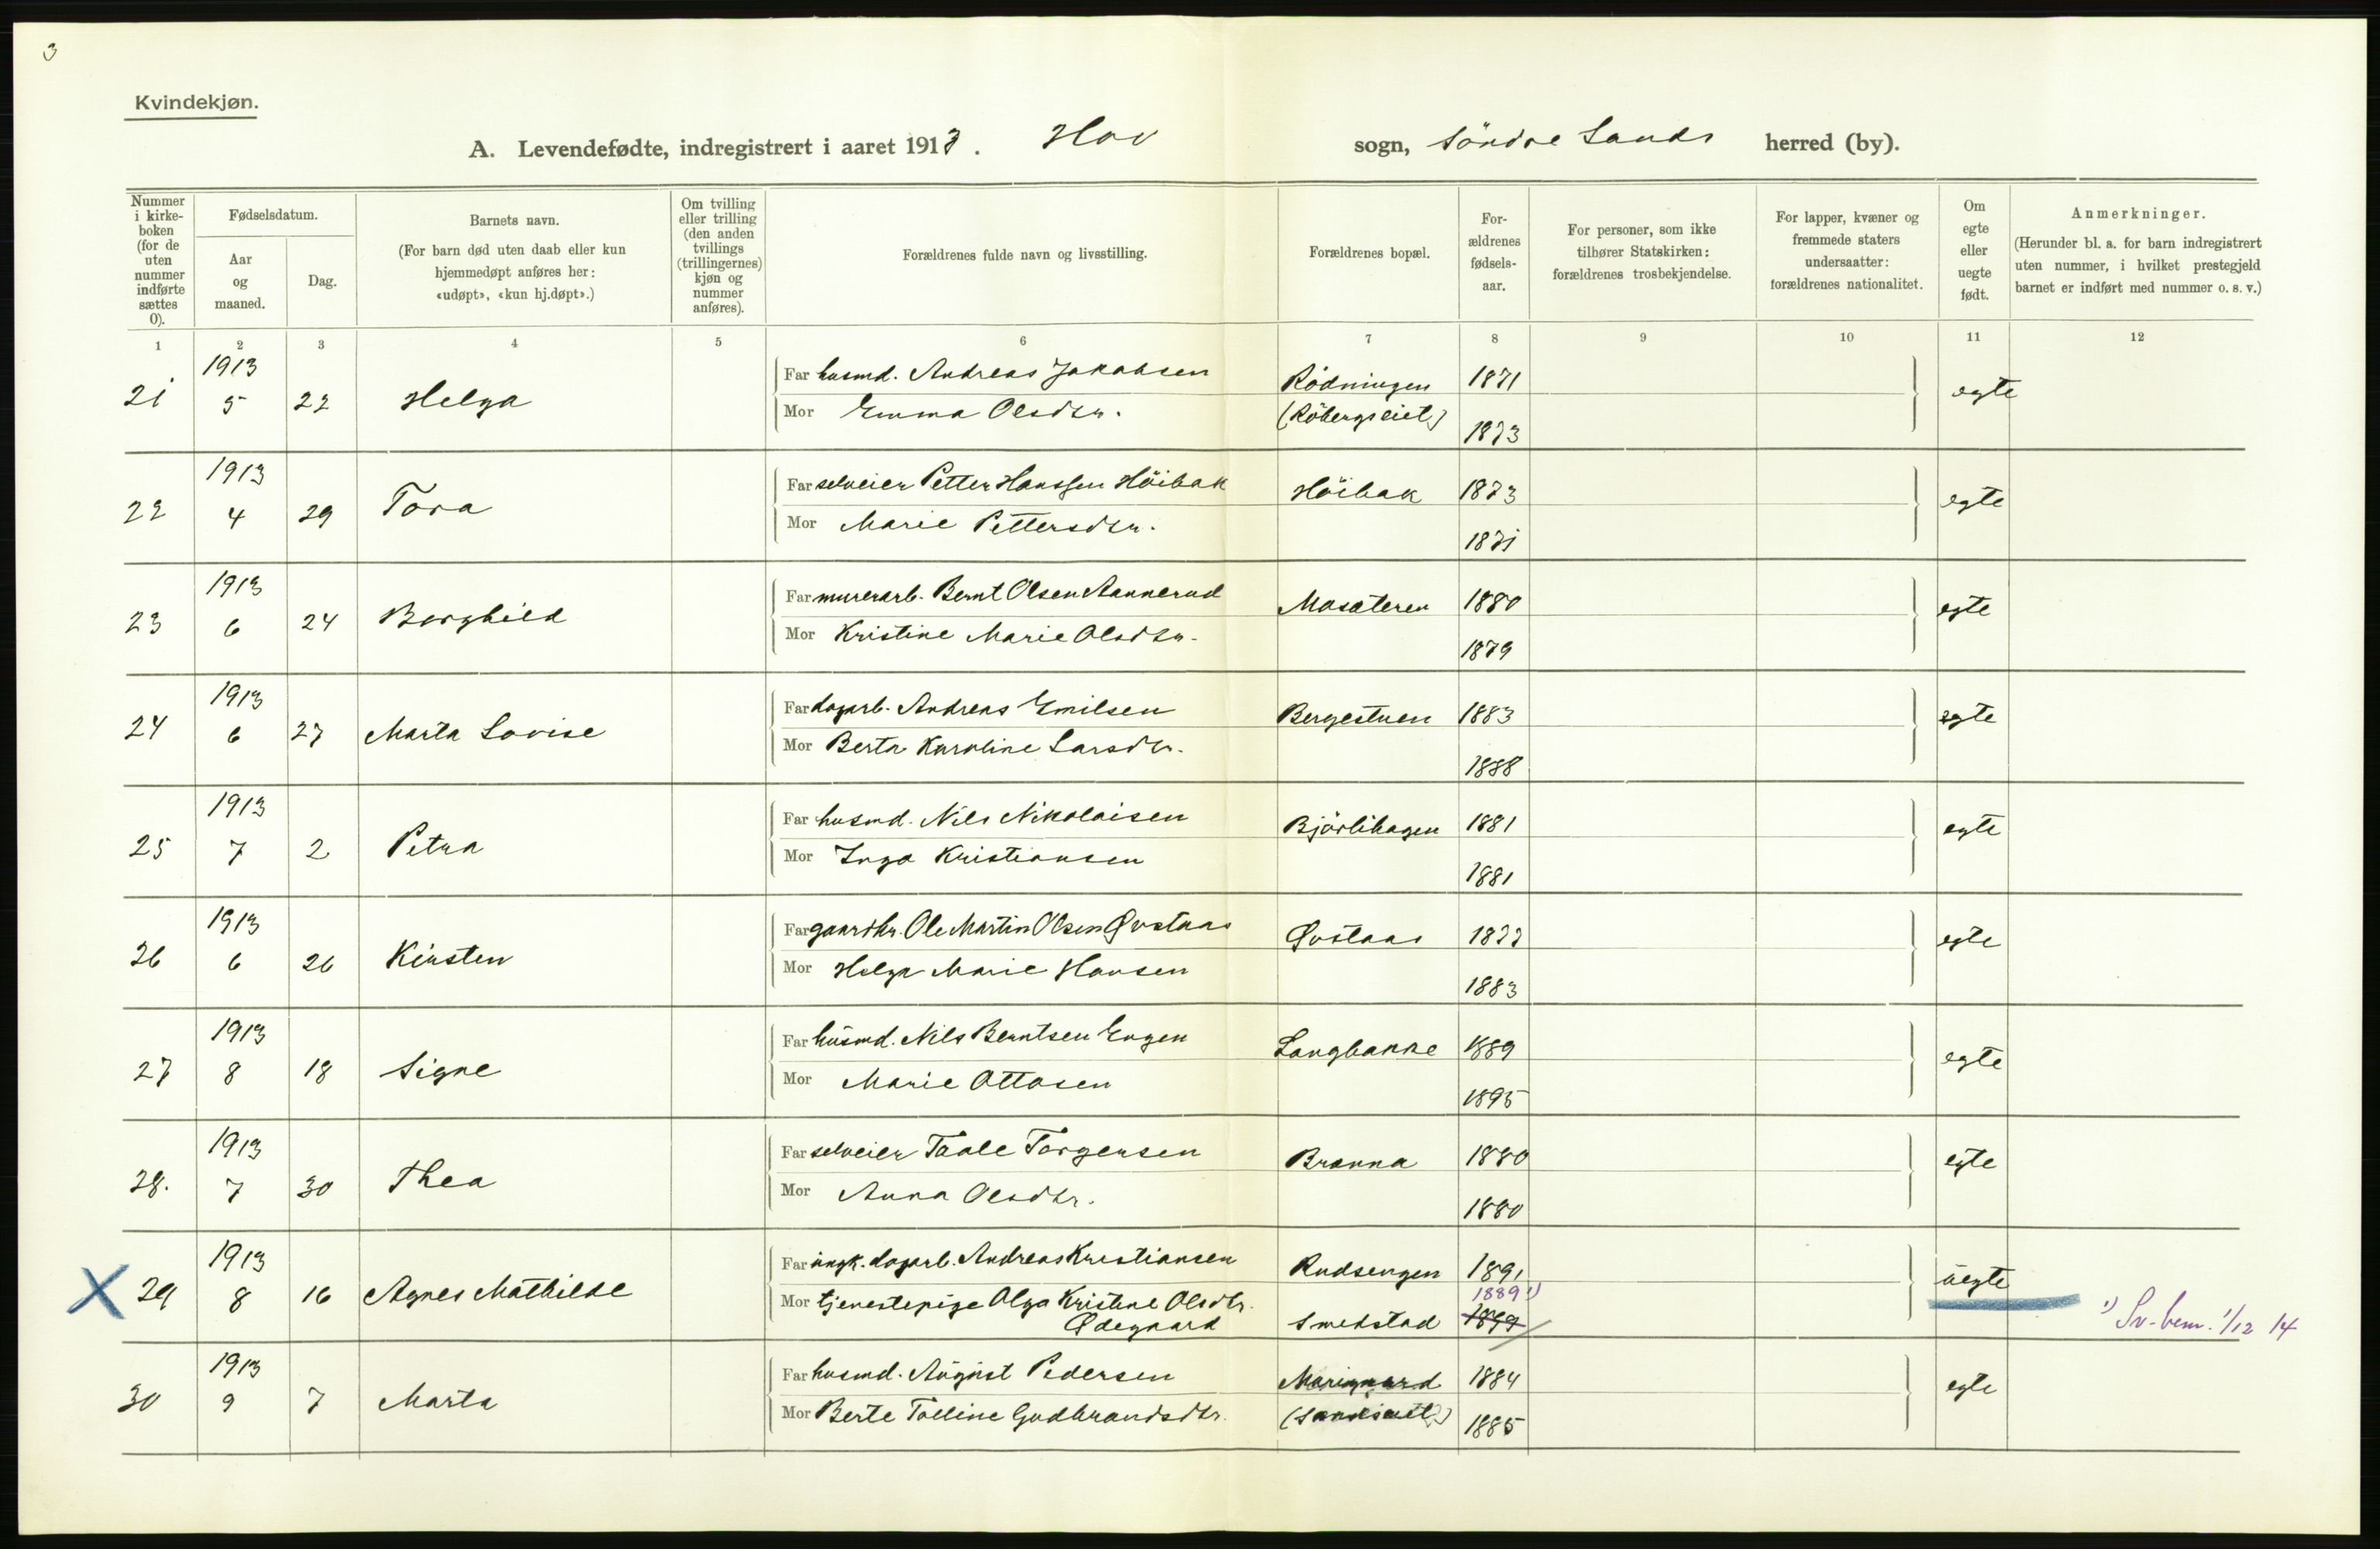 3
Kvindekjøn.
A. Levendefødte, indregistrert i aaret 1913. Hov sogn, Söndre Lands herred (by).
Nummer i kirkeboken (for de uten nummer indførte sættes 0).
Fødselsdatum.
Aar og maaned.
Dag.
Barnets navn.
(For barn død uten daab eller kun hjemmedøpt anføres her: «udøpt», «kun hj.døpt».)
Om tvilling eller trilling (den anden tvillings (trillingernes) kjøn og nummer anføres).
Forældrenes fulde navn og livsstilling.
Forældrenes bopæl.
Forældrenes fødselsaar.
For personer, som ikke tilhører Statskirken: forældrenes trosbekjendelse.
For lapper, kvæner og fremmede staters undersaatter: forældrenes nationalitet.
Om egte eller uegte født.
Anmerkninger.
(Herunder bl. a. for barn indregistrert uten nummer, i hvilket prestegjeld barnet er indført med nummer o. s. v.)
1 2 3 4 5 6 7 8 9 10 11 12
1913 Far husmd. Andreas Jakobsen Rödningen 1871
21 5 22 Helga egte
Mor Emma Olsdtr. (Röbergseiet) 1873
1913 Far selveier Petter Hanssen Höibak Höibak 1873
22 4 29 Tora egte
Mor Marie Pettersdtr. 1871
1913 Far murerarb. Bernt Olsen Aannerud Mosæteren 1880
23 6 24 Borghild egte
Mor Kristine Marie Olsdtr. 1879
1913 Far dagarb. Andreas Emilsen Bergestuen 1883
24 6 27 Marta Lovise egte
Mor Berta Karoline Larsdtr. 1888
1913 Far husmd. Nils Nikolaisen Björlihagen 1881
25 7 2 Petra egte
Mor Inga Kristiansen 1881
1913 Far gaardbr. Ole Martin Olsen Øvstaas Øvstaas 1877
26 6 26 Kirsten egte
Mor Helga Marie Hansen 1883
1913 Far husmd. Nils Berntsen Engen Langbakke 1889
27 8 18 Signe egte
Mor Marie Ottosen 1895
1913 Far selveier Taale Torgersen Branna 1880
28. 7 30 Thea egte
Mor Anna Olsdtr. 1880
1913 Far ungk. dagarb. Andreas Kristiansen Rudsengen 1891
X 29 8 16 Agnes Mathilde uegte
Mor tjenestepige Olga Kristine Olsdtr. 1889 1)
Ødegaard Smedstad 1899 1) Sv. bem. 1/12 14
1913 Far husmd. August Pedersen 1884
30 9 7 Marta egte
Mor Berte Tolline Gudbrandsdtr. 1885